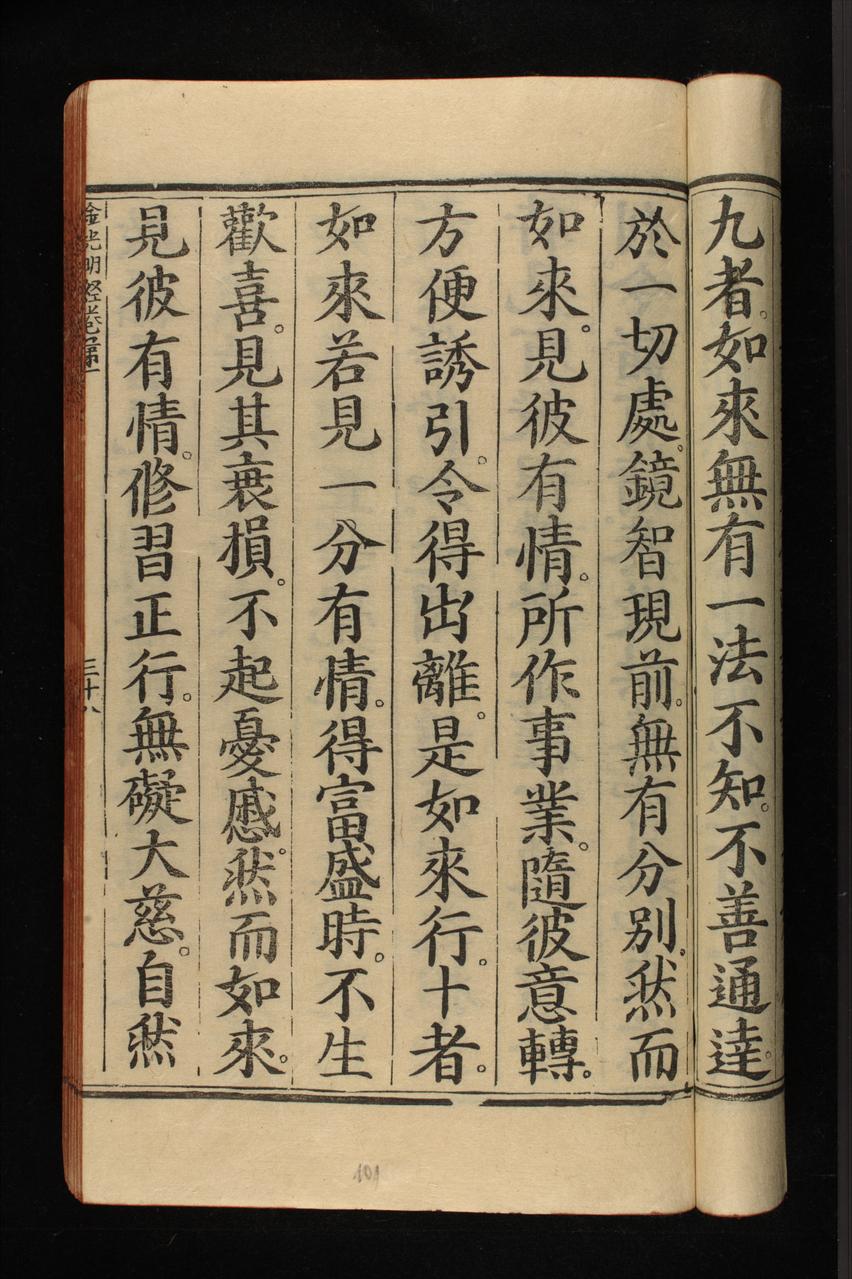 九者。如來無有一法不知。不善通達。
於一切處。鏡智現前。無有分別。然而
如來。見彼有情。所作事業。隨彼意轉。
方便誘引。令得出離。是如來行。十者。
如來若見一分有情。得富盛時。不生
歡喜。見其衰損。不起憂慼。然而如來。
見彼有情。修習正行。無礙大慈。自然
金光明經卷第一
三十八
101